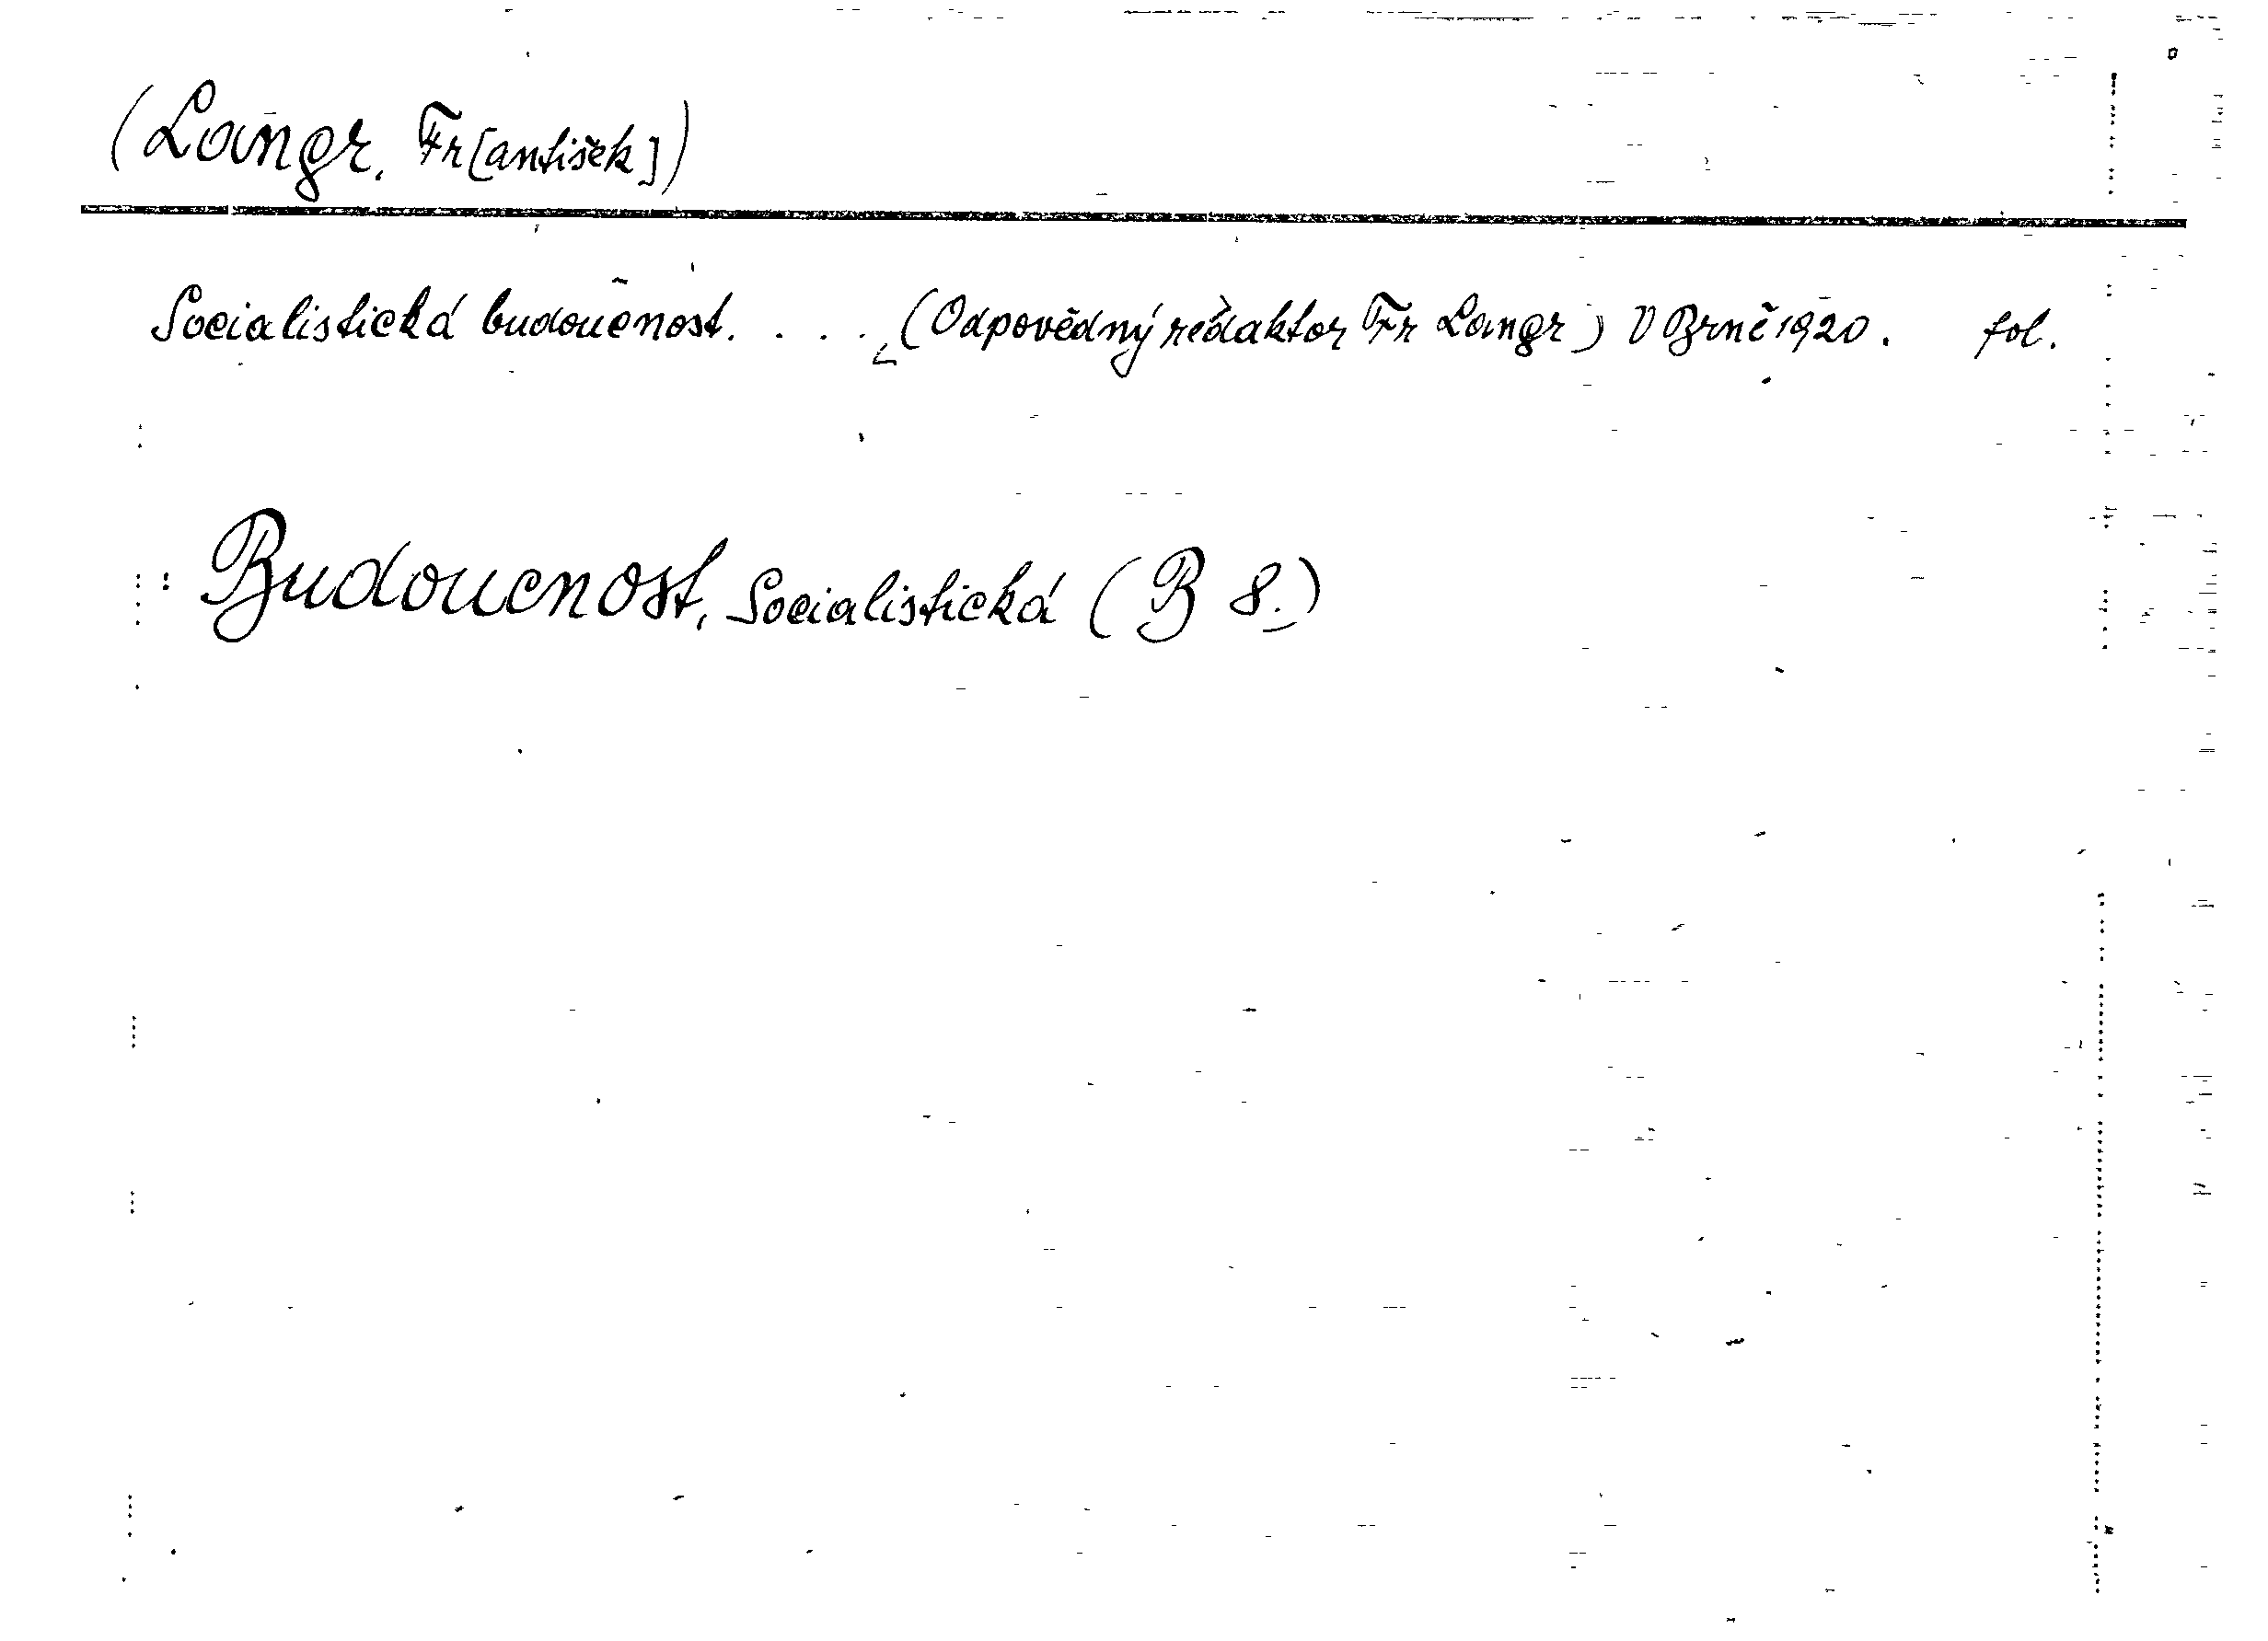 (Langr, Fr[antišek])
Socialistická budoucnost. . . . (Odpovědný redaktor Fr Langr) V Brně 1920. fol.
: Budoucnost, Socialistická (B 8.)